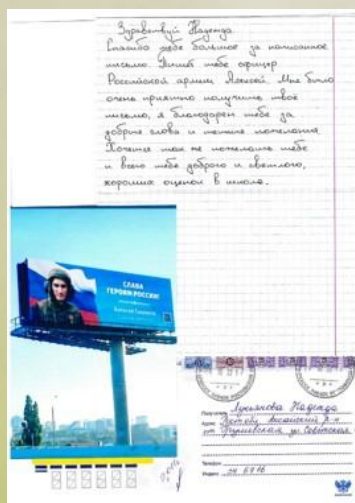 Здравствуй Надежда
Спасибо тебе большое за написанное
письмо. Пишет тебе офицер
Российской армии Алексей. Мне было
очень приятно получить твоё
письмо, я благодарен тебе за
добрые слова и теплые пожелания.
Хочется так же пожелать тебе
и всего тебе доброго и светлого,
хороших оценок в школе.
СЛАВА
ГЕРОЯМ РОССИИ!
Лукьянова Надежда
Адрес
ул Советская
Телефон
Индекс